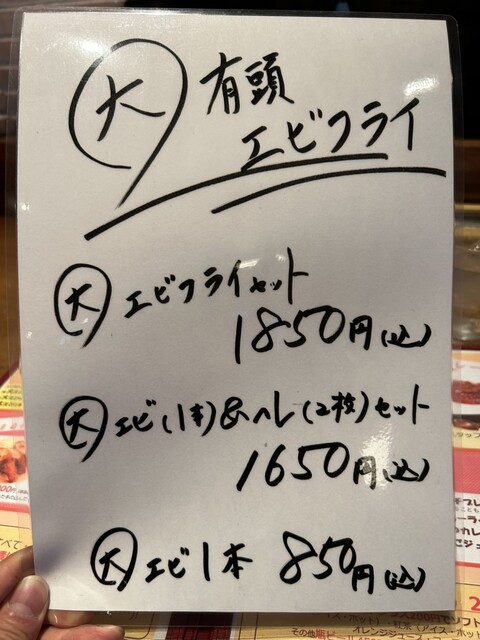 大 有頭
エビフライ
大 エビフライセット
1850円(込)
大 エビ(1本)&ヘレ(2枚)セット
1650円(込)
大 エビ1本 850円(込)